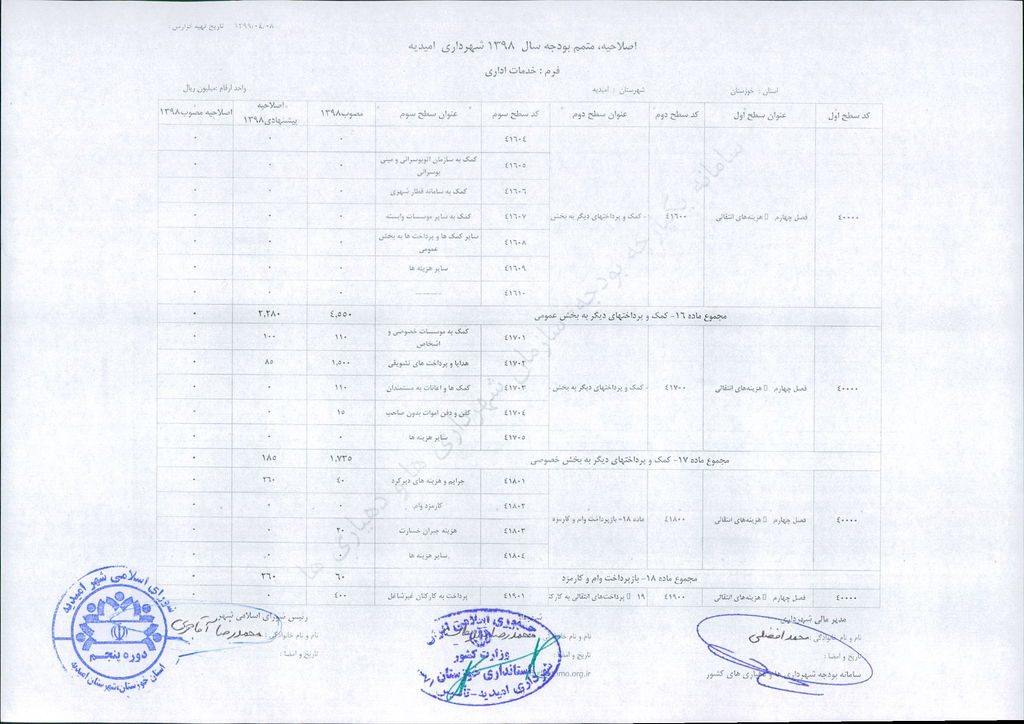 تاریخ تهیه گزارش : ۱۳۹۹/۰۴/۰۸
اصلاحیه، متمم بودجه سال ۱۳۹۸ شهرداری امیدیه
فرم : خدمات اداری
استان : خوزستان شهرستان : امیدیه واحد ارقام :میلیون ریال
کد سطح اول عنوان سطح اول کد سطح دوم عنوان سطح دوم کد سطح سوم عنوان سطح سوم مصوب۱۳۹۸ اصلاحیه پیشنهادی۱۳۹۸ اصلاحیه مصوب۱۳۹۸
۴۱۶۰۴ ۰ ۰ ۰
۴۱۶۰۵ کمک به سازمان اتوبوسرانی و مینی بوسرانی ۰ ۰ ۰
۴۱۶۰۶ کمک به سامانه قطار شهری ۰ ۰ ۰
۴۰۰۰۰ فصل چهارم هزینه‌های انتقالی ۴۱۶۰۰ - کمک و پرداختهای دیگر به بخش ۴۱۶۰۷ کمک به سایر موسسات وابسته ۰ ۰ ۰
۴۱۶۰۸ سایر کمک ها و پرداخت ها به بخش عمومی ۰ ۰ ۰
۴۱۶۰۹ سایر هزینه ها ۰ ۰ ۰
۴۱۶۱۰ ---------- ۰ ۰ ۰
مجموع ماده ۱۶- کمک و پرداختهای دیگر به بخش عمومی ۴,۵۵۰ ۲,۲۸۰ ۰
۴۱۷۰۱ کمک به موسسات خصوصی و اشخاص ۱۱۰ ۱۰۰ ۰
۴۱۷۰۲ هدایا و پرداخت های تشویقی ۱,۵۰۰ ۸۵ ۰
۴۰۰۰۰ فصل چهارم هزینه‌های انتقالی ۴۱۷۰۰ - کمک و پرداختهای دیگر به بخش ۴۱۷۰۳ کمک ها و اعانات به مستمندان ۱۱۰ ۰ ۰
۴۱۷۰۴ کفن و دفن اموات بدون صاحب ۱۵ ۰ ۰
۴۱۷۰۵ سایر هزینه ها ۰ ۰ ۰
مجموع ماده ۱۷- کمک و پرداختهای دیگر به بخش خصوصی ۱,۷۳۵ ۱۸۵ ۰
۴۱۸۰۱ جرایم و هزینه های دیرکرد ۴۰ ۲۶۰ ۰
۴۱۸۰۲ کارمزد وام ۰ ۰ ۰
۴۰۰۰۰ فصل چهارم هزینه‌های انتقالی ۴۱۸۰۰ ماده ۱۸- بازپرداخت وام و کارمزد ۴۱۸۰۳ هزینه جبران خسارت ۲۰ ۰ ۰
۴۱۸۰۴ سایر هزینه ها ۰ ۰ ۰
مجموع ماده ۱۸- بازپرداخت وام و کارمزد ۶۰ ۲۶۰ ۰
۴۰۰۰۰ فصل چهارم هزینه‌های انتقالی ۴۱۹۰۰ ۱۹ پرداختهای انتقالی به کارک ۴۱۹۰۱ پرداخت به کارکنان غیرشاغل ۴۰۰ ۰ ۰
مدیر مالی شهرداری رئیس شورای اسلامی شهر
نام و نام خانوادگی : محمد افضلی نام و نام خ محمدرضا نام و نام خانوادگی : محمدرضا آقاجری
تاریخ و امضا : تاریخ و امضا :
سامانه بودجه شهرداری ها و دهیاری های کشور imo.org.ir
سامانه یکپارچه بودجه سازمان شهرداری ها و دهیاری ها
شورای اسلامی شهر امیدیه
دوره پنجم
استان خوزستان، شهرستان امیدیه
جمهوری اسلامی ایران
وزارت کشور
استانداری خوزستان
شهرداری امیدیه